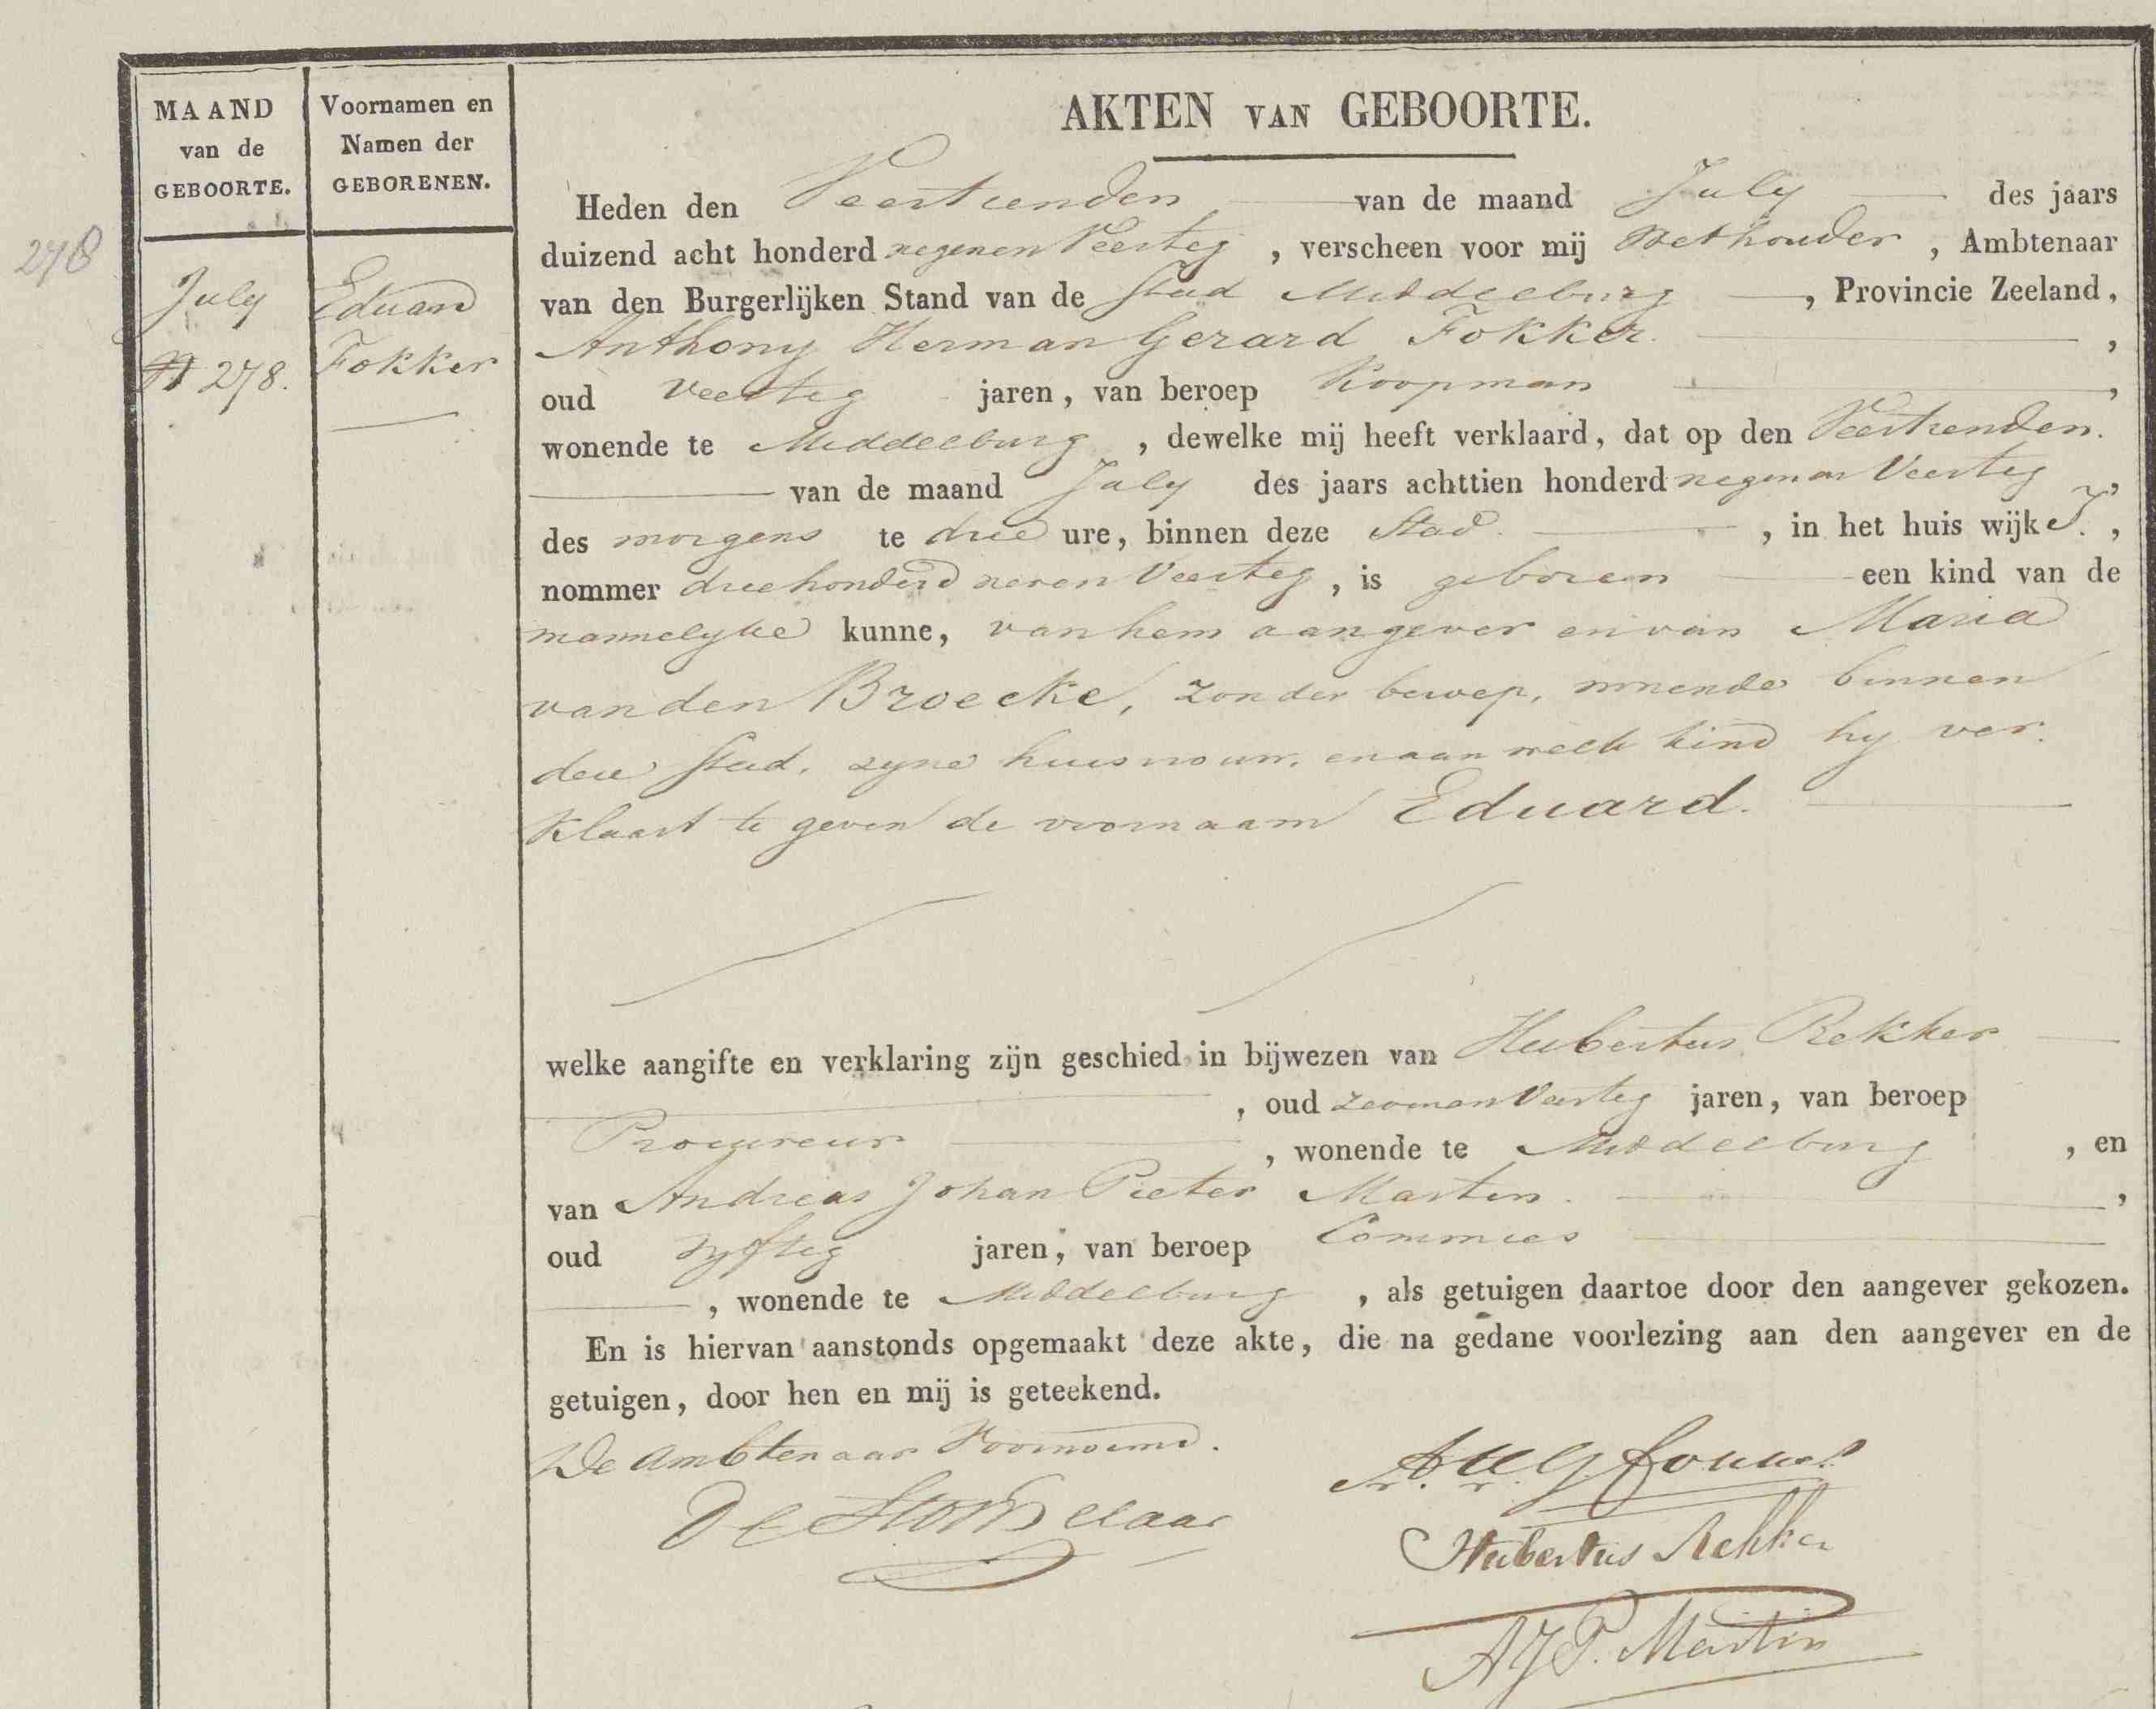 AKTEN VAN GEBOORTE.
MAAND
van de
GEBOORTE.
Voornamen en
Namen der
GEBORENEN.
278
July
N 278.
Eduard
Fokker
Heden den Veertienden van de maand July des jaars
duizend acht honderd negenen Veertig, verscheen voor mij Wethouder, Ambtenaar
van den Burgerlijken Stand van de Stad Middelburg, Provincie Zeeland,
Anthony Herman Gerard Fokker.,
oud Veertig jaren, van beroep Koopman,
wonende te Middelburg, dewelke mij heeft verklaard, dat op den Veertienden.
van de maand July des jaars achttien honderd negen en Veertig,
des morgens te drie ure, binnen deze Stad., in het huis wijk,
nommer driehonderd zeven Veertig, is geboren een kind van de
mannelyke kunne, van hem aangever en van Maria
van den Broecke, zonder beroep, wonende binnen
deze Stad, zyne huisvrouw, en aan welk kind hy ver.
klaart te geven de voornaam Eduard.
welke aangifte en verklaring zijn geschied in bijwezen van Hubertus Rekker
, oud zevenenVeertig jaren, van beroep
Procureur, wonende te Middelburg, en
van Andreas Johan Pieter Martin.,
oud vyftig jaren, van beroep Commies
, wonende te Middelburg, als getuigen daartoe door den aangever gekozen.
En is hiervan aanstonds opgemaakt deze akte, die na gedane voorlezing aan den aangever en de
getuigen, door hen en mij is geteekend.
De Ambtenaar Voornoemd.
De Stoppelaar
AHG Fokker
Hubertus Rekker
AJP. Martin